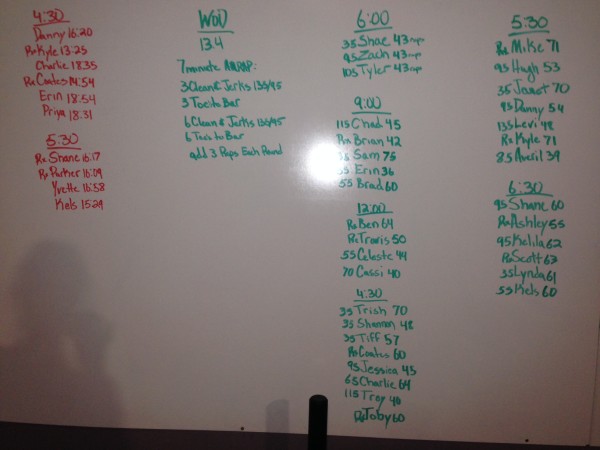 4:30
Danny 16:20
Rx Kyle 13:25
Charlie 18:35
Rx Coates 14:54
Erin 18:54
Priya 18:31
5:30
Rx Shane 16:17
Rx Parker 16:09
Yvette 16:58
Kels 15:29
WOD
13.4
7 minute AMRAP:
3 Clean & Jerks 135/95
3 Toes to Bar
6 Clean & Jerks 135/95
6 Toes to Bar
add 3 Reps Each Round
6:00
35 Shae 43 reps
95 Zach 43 reps
105 Tyler 43 reps
9:00
115 Chad 45
Rx Brian 42
Sam 75
35 Erin 36
55 Brad 60
12:00
Rx Ben 64
Rx Travis 50
55 Celeste 44
70 Cassi 40
4:30
35 Trish 70
35 Shannon 48
35 Tiff 57
Rx Coates 60
95 Jessica 45
65 Charlie 64
115 Troy 40
Rx Toby 60
5:30
Rx Mike 71
95 Hugh 53
35 Janet 70
95 Danny 54
135 Levi 48
Rx Kyle 71
85 Averil 39
6:30
95 Shane 60
Rx Ashley 55
95 Kelila 62
Rx Scott 63
35 Lynda 61
55 Kels 60